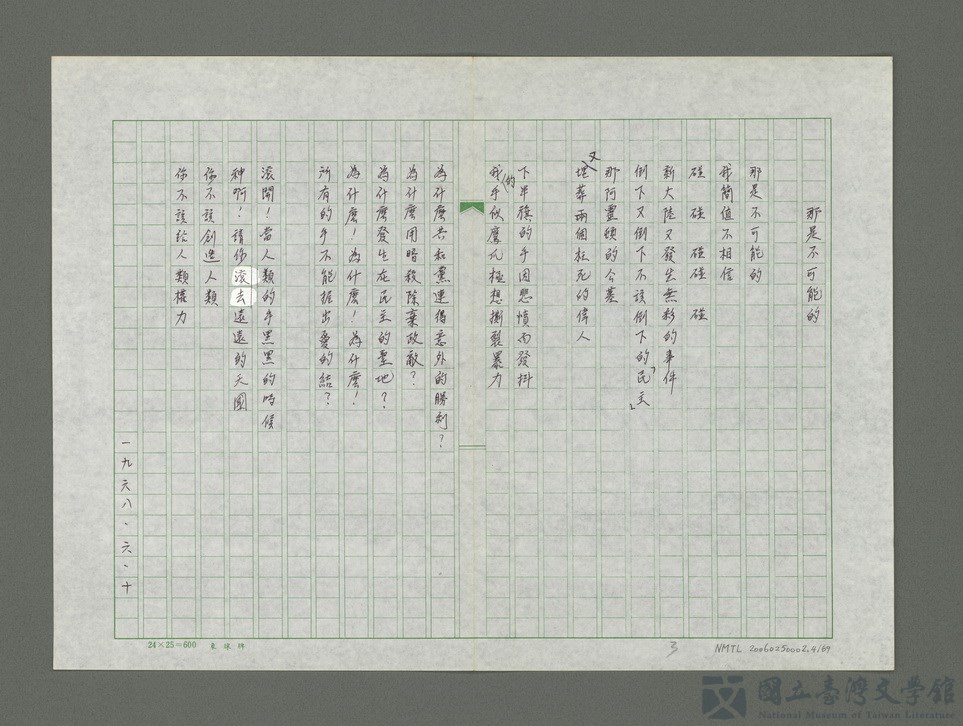 那是不可能的
那是不可能的
我簡值不相信
碰　碰　碰碰　碰
新大陸又發生無彩的事件
倒下又倒下不該倒下的「民主」
那阿靈頓的公墓
又埋葬兩個枉死的偉人
下半旗的手因悲憤而發抖
我的手似鷹爪極想撕裂暴力
為什麼共和黨連得意外的勝利？
為什麼用暗殺除棄政敵？
為什麼發生在民主的聖地？
為什麼！為什麼！為什麼！
所有的手不能握出愛的結？
滾開！當人類的手黑黑的時候
神啊！請你滾去遠遠的天國
你不該創造人類
你不該給人類權力
一九六八、六、十
24×25=600
3
NMTL 20060250002.4169
國立臺灣文學館
National Museum of Taiwan Literature